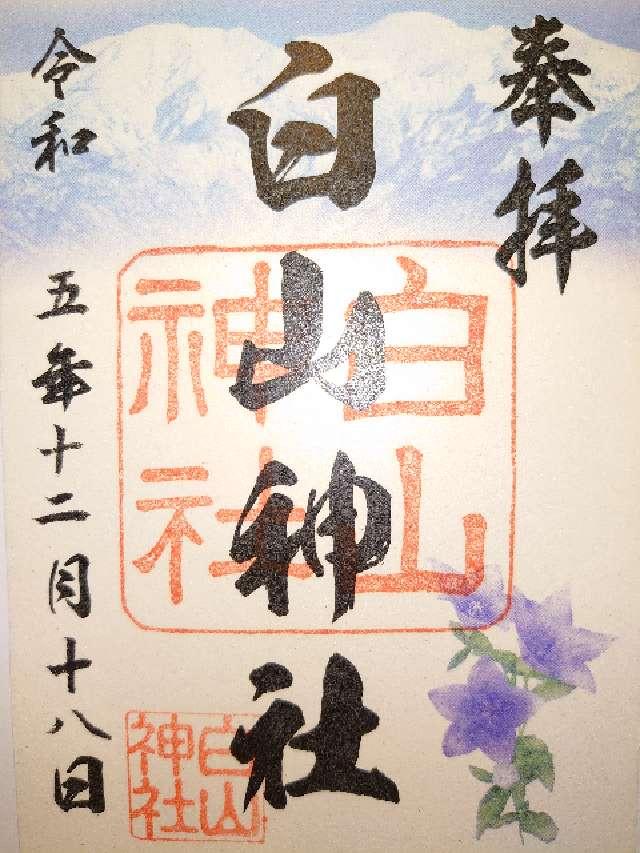 奉拝
白山神社
白山
神社
白山
神社
令和
五年十二月十八日